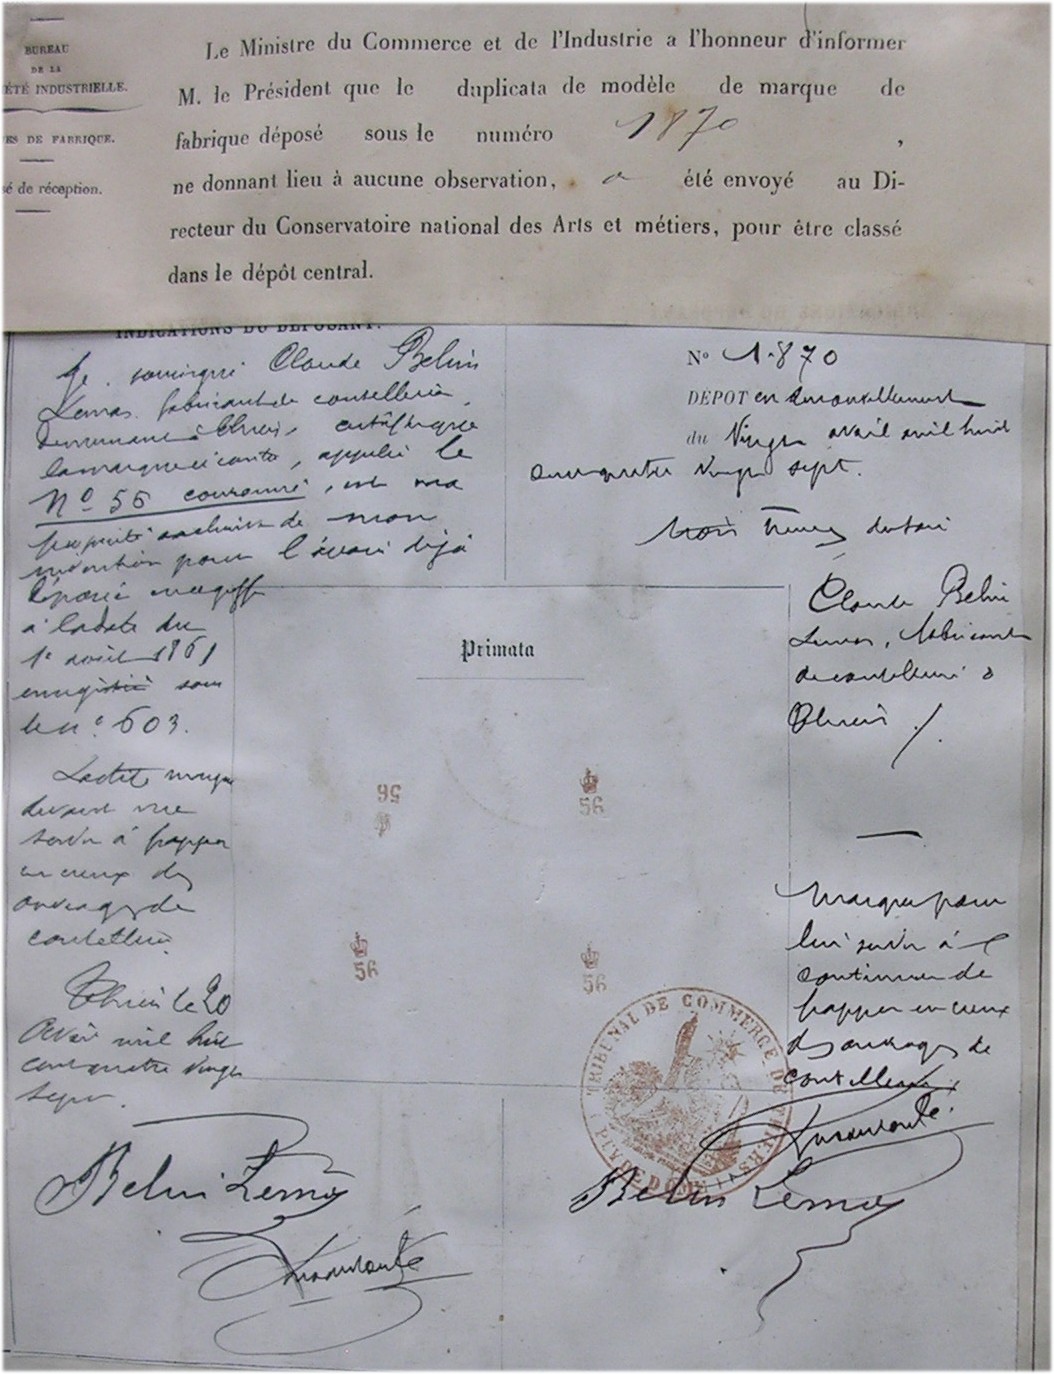 BUREAU
DE LA
ÉTÉ INDUSTRIELLE.
ES DE FABRIQUE.
sé de réception.
Le Ministre du Commerce et de l'Industrie a l'honneur d'informer
M. le Président que le duplicata de modèle de marque de
fabrique déposé sous le numéro 1870 ,
ne donnant lieu à aucune observation, a été envoyé au Di-
recteur du Conservatoire national des Arts et métiers, pour être classé
dans le dépôt central.
INDICATIONS DU DÉPOSANT.
Je soussigné Claude Belin
Lemas fabricant de coutellerie
demeurant à Thiers, certifie que
la marque ci contre, appelée le
N° 56 couronné, est ma
propriété exclusive de mon
invention pour l'avoir déjà
déposée au greffe
à la date du
1e août 1861
enregistré sous
le n° 603.
Ladite marque
devant me
servir à frapper
en creux des
ouvrages de
coutellerie
Thiers le 20
Avril mil huit
cent quatre vingt
sept.
Belin Lemas
N° 1870
DÉPOT en renouvellement
du Vingt avril mil huit
cent quatre vingt sept.
trois heures du soir
Claude Belin
Lemas, fabricant
de coutellerie à
Thiers
Primata
56
56
56
56
Marque pour
lui servir à
continuer de
frapper en creux
des ouvrages de
coutellerie
TRIBUNAL DE COMMERCE DE THIERS
PUY DE DOME
Belin Lemas